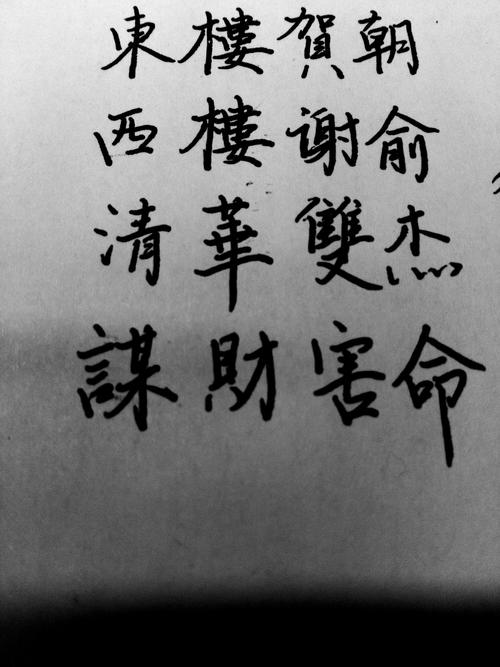 東樓賀朝
西樓谢俞
清華雙杰
謀財害命